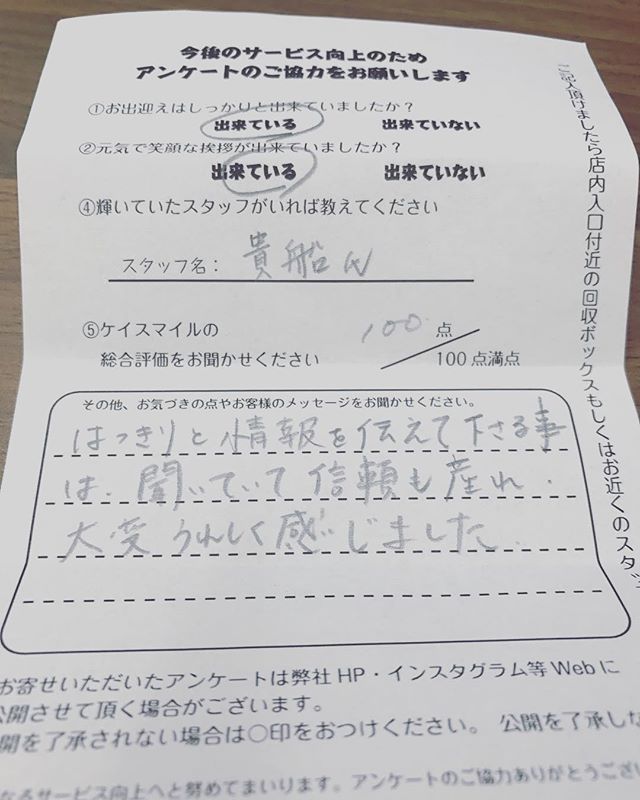 今後のサービス向上のため
アンケートのご協力をお願いします
①お出迎えはしっかりと出来ていましたか？
出来ている 出来ていない
②元気で笑顔な挨拶が出来ていましたか？
出来ている 出来ていない
④輝いていたスタッフがいれば教えてください
スタッフ名： 貴船
⑤ケイスマイルの 100 点
総合評価をお聞かせください 100点満点
その他、お気づきの点やお客様のメッセージをお聞かせください。
はっきりと情報を伝えて下さる事
は、聞いていて信頼も産れ、
大変うれしく感じました。
お寄せいただいたアンケートは弊社HP・インスタグラム等Webに
公開させて頂く場合がございます。
開を了承されない場合は○印をおつけください。 公開を了承しな
なるサービス向上へと努めてまいります。アンケートのご協力ありがとうござい
ご記入頂けましたら店内入口付近の回収ボックスもしくはお近くのスタッ